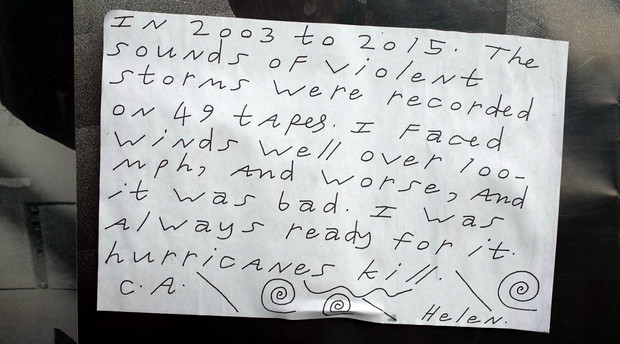 IN 2003 to 2015. The
sounds of violent
storms were recorded
on 49 tapes. I faced
winds well over 100-
mph, and worse, and
it was bad. I was
always ready for it.
hurricanes kill.
C.A. Helen.